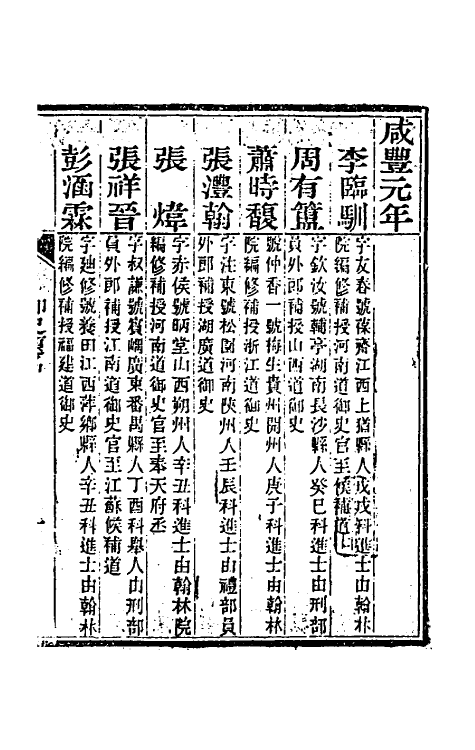 咸豐元年
李臨馴
字友春號葆齋江西上猶縣人戊戌科進士由翰林
院編修補授河南道御史官至候補道
周有簠
字欽汝號輔亭湖南長沙縣人癸巳科進士由刑部
員外郎補授山西道御史
蕭時馥
號仲香一號梅生貴州開州人庚子科進士由翰林
院編修補授浙江道御史
張灃翰
字注東號松園河南陝州人壬辰科進士由禮部員
外郎補授湖廣道御史
張煒
字赤侯號昞堂山西朔州人辛丑科進士由翰林院
編修補授河南道御史官至奉天府丞
張祥晉
字叔謙號賓嵎廣東番禺縣人丁酉科舉人由刑部
員外郎補授江南道御史官至江蘇候補道
彭涵霖
字廸修號養田江西萍鄉縣人辛丑科進士由翰林
院編修補授福建道御史